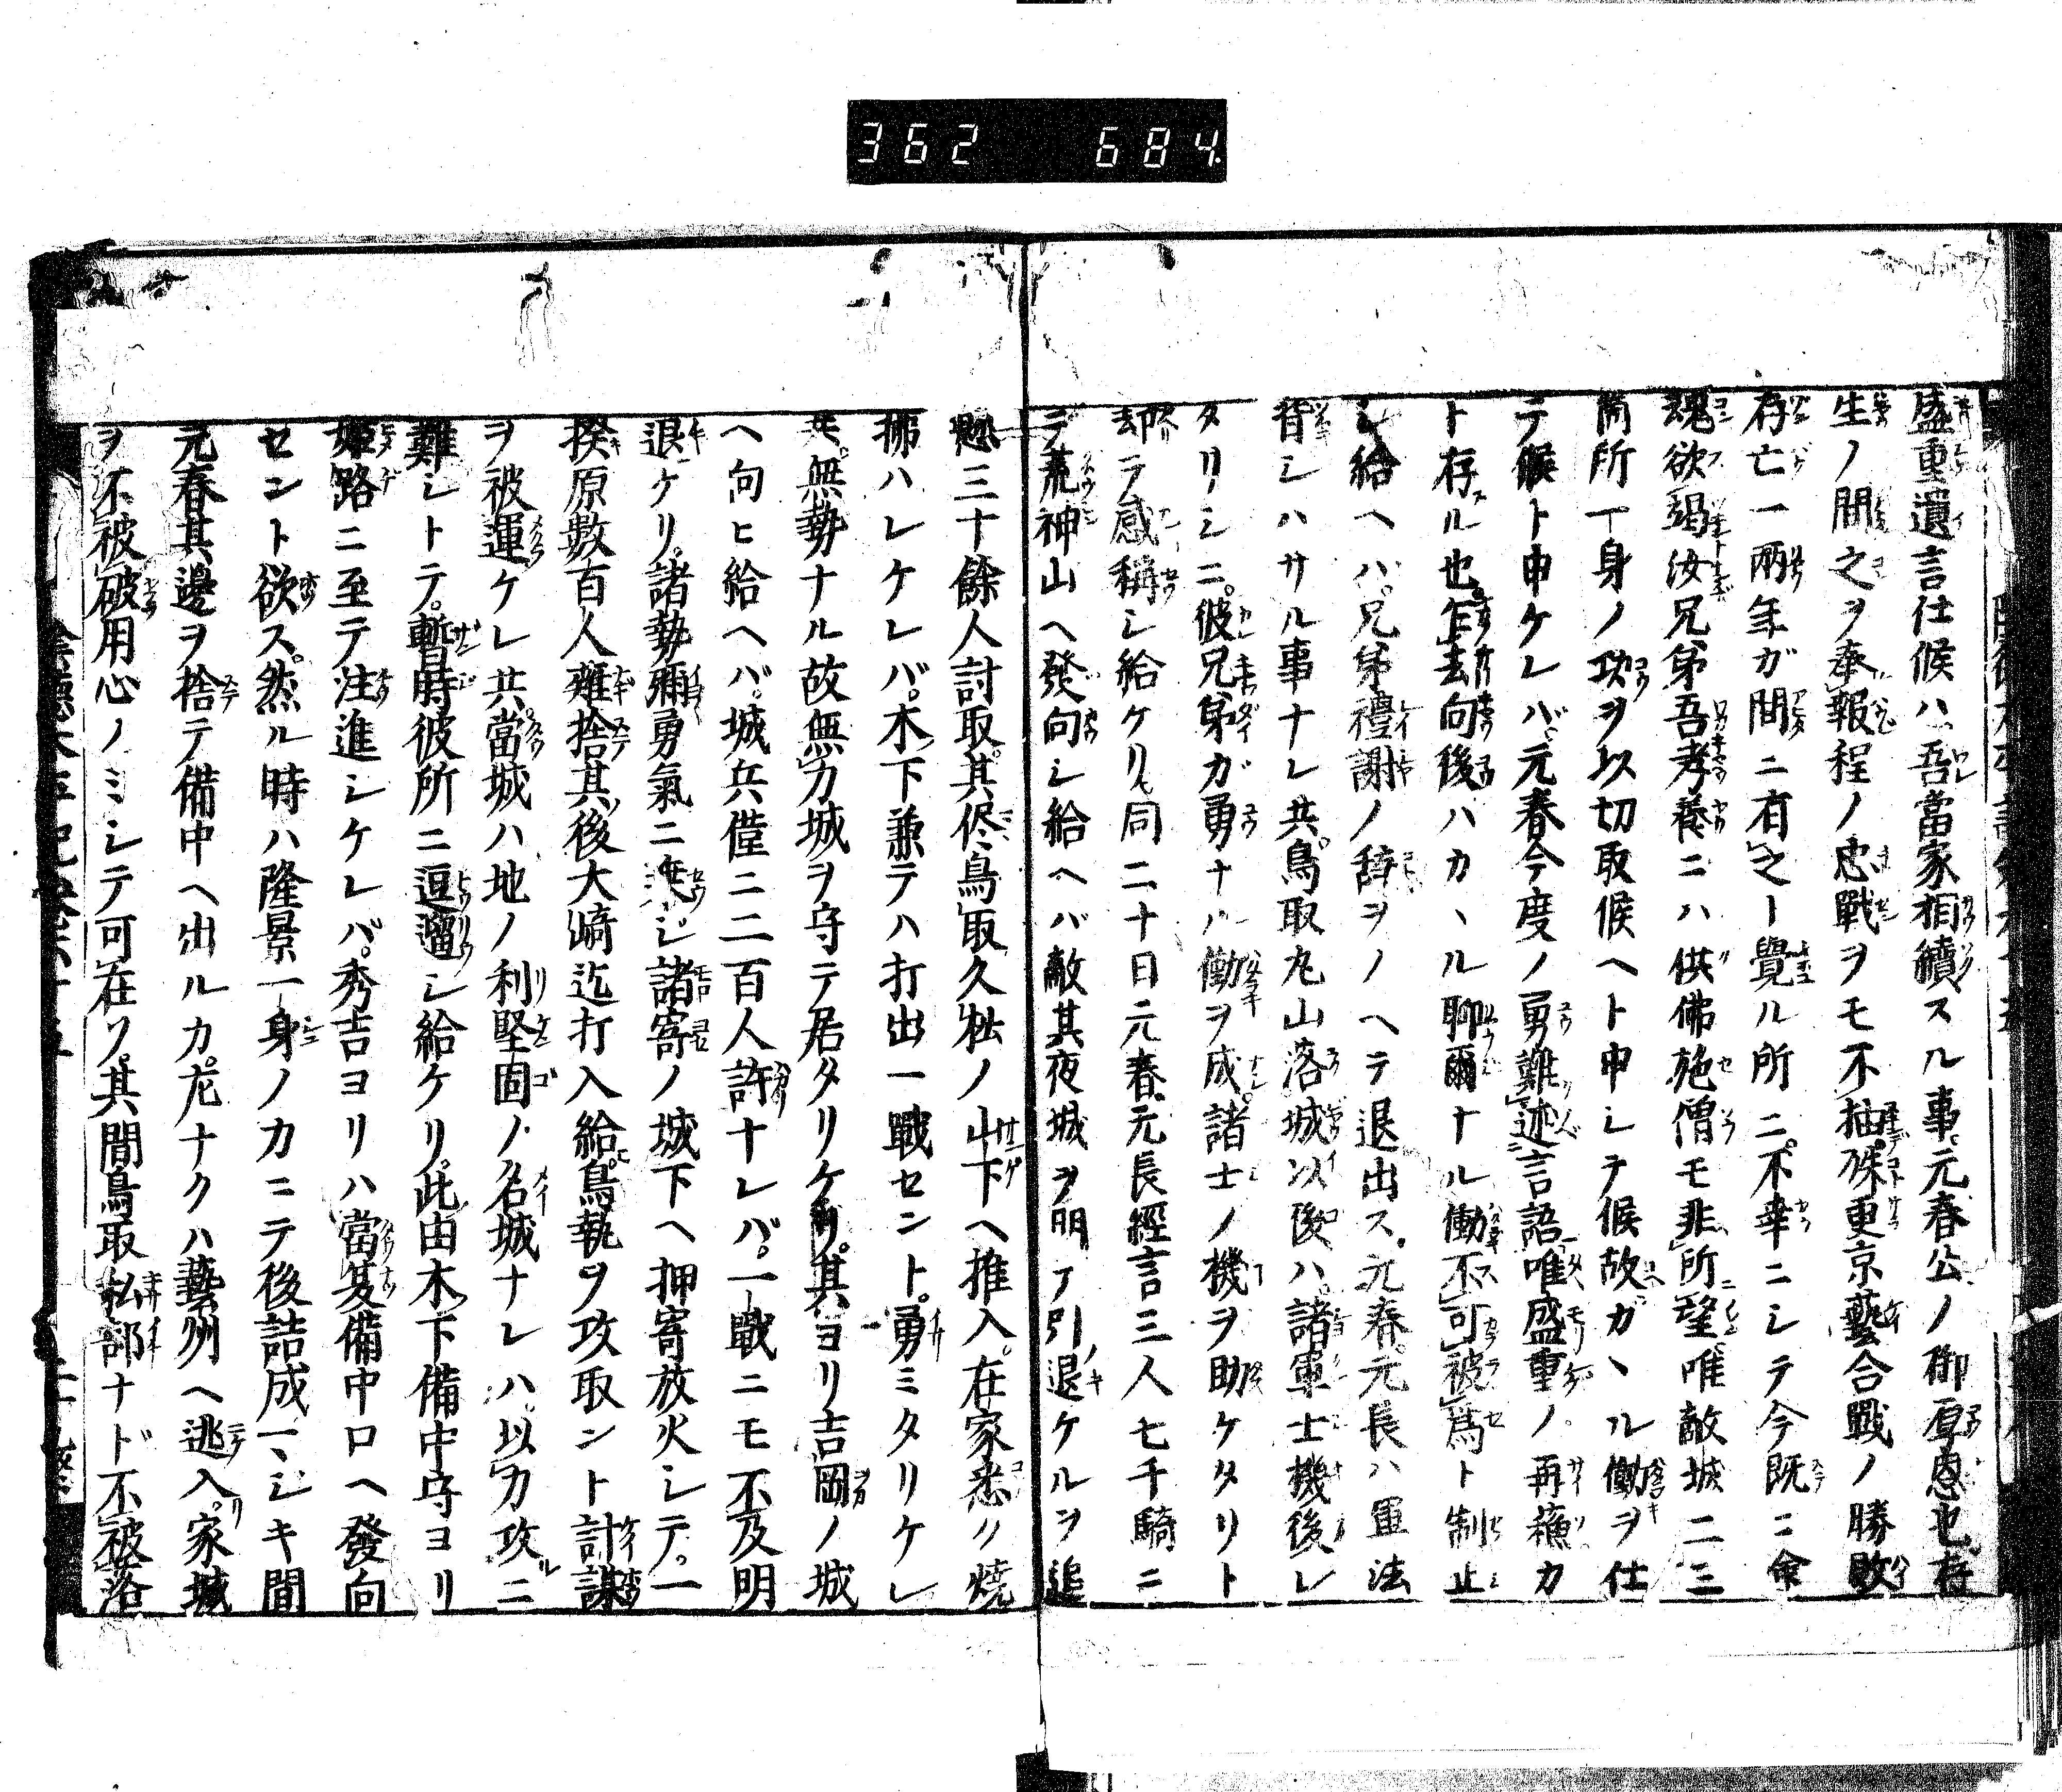 362 684
盛重遺言仕候ハ吾當家相續スル事元春公ノ御厚恩也存
生ノ間之ヲ奉報程ノ忠戰ヲモ不抽殊更京藝合戰ノ勝敗
存亡一兩年ガ間ニ有之ト覺ル所ニ不幸ニシテ今既ニ命
魂欲竭汝兄弟吾孝養ニハ供佛施僧モ非所望唯敵城二三
箇所一身ノ功ヲ以切取候ヘト申シテ候故ガヽル働ヲ仕
テ候ト申ケレバ元春今度ノ勇難述言語唯盛重ノ再蘓カ
ト存ル也乍去向後ハカヽル聊爾ナル働不可被爲ト制止
シ給ヘハ兄弟禮謝ノ辞ヲノヘテ退出ス元春元長ハ軍法
背シハサル事ナレ共鳥取丸山落城以後ハ諸軍士機後レ
タリシニ彼兄弟ガ勇ナル働ヲ成諸士ノ機ヲ助ケタリト
却テ感稱シ給ケリ同二十日元春元長經言三人七千騎ニ
テ荒神山ヘ發向シ給ヘバ敵其夜城ヲ明テ引退ケルヲ追
懸三十餘人討取其侭鳥取久松ノ山下ヘ推入在家悉ク焼
拂ハレケレバ木下兼テハ打出一戰セント勇ミタリケレ
共無勢ナル故無力城ヲ守テ居タリケリ其ヨリ吉岡ノ城
ヘ向ヒ給ヘバ城兵僅ニ二百人許ナレバ一戰ニモ不及明
退ケリ諸勢彌勇氣ニ乗シ諸寄ノ城下ヘ押寄放火シテ一
揆原數百人薙捨其後大﨑迄打入給鳥執ヲ攻取ント計謀
ヲ被運ケレ共當城ハ地ノ利堅固ノ名城ナレハ以力攻ニ
難シトテ暫時彼所ニ逗遛シ給ケリ此由木下備中守ヨリ
姫路ニ至テ注進シケレバ秀吉ヨリハ當夏備中口ヘ發向
セント欲ス然ル時ハ隆景一身ノ力ニテ後詰成マシキ間
元春其邊ヲ捨テ備中ヘ出ルカ左ナクハ藝州ヘ逃入家城
ヲ不被破用心ノミシテ可在ソ其間鳥取私部ナド不被落